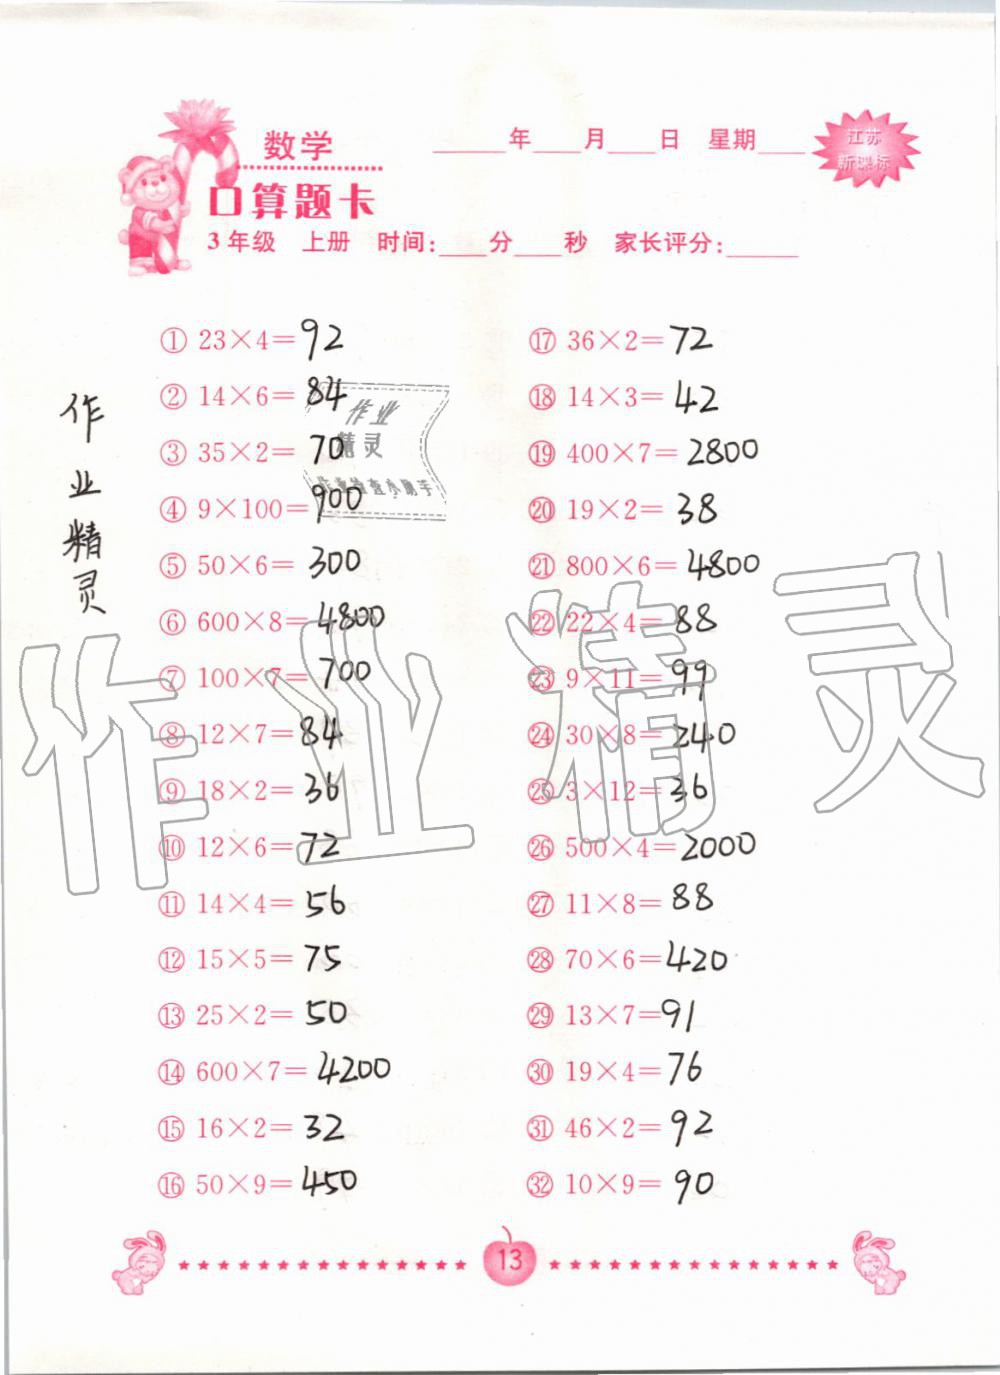 数学
____年____月____日 星期____
江苏
新课标
口算题卡
3年级 上册 时间:____分____秒 家长评分:____
① 23×4=92
② 14×6=84
③ 35×2=70
④ 9×100=900
⑤ 50×6=300
⑥ 600×8=4800
⑦ 100×7=700
⑧ 12×7=84
⑨ 18×2=36
⑩ 12×6=72
⑪ 14×4=56
⑫ 15×5=75
⑬ 25×2=50
⑭ 600×7=4200
⑮ 16×2=32
⑯ 50×9=450
⑰ 36×2=72
⑱ 14×3=42
⑲ 400×7=2800
⑳ 19×2=38
㉑ 800×6=4800
㉒ 22×4=88
㉓ 9×11=99
㉔ 30×8=240
㉕ 3×12=36
㉖ 500×4=2000
㉗ 11×8=88
㉘ 70×6=420
㉙ 13×7=91
㉚ 19×4=76
㉛ 46×2=92
㉜ 10×9=90
作业精灵
作业
精灵
作业检查小助手
作业精灵
13